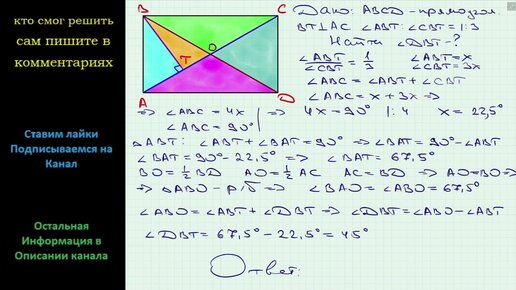 кто смог решить
сам пишите в
комментариях
Ставим лайки
Подписываемся на
Канал
Остальная
Информация в
Описании канала
B
C
O
T
A
D
Дано: ABCD - прямоуг.
BT⊥AC ∠ABT:∠CBT=1:3
Найти ∠DBT-?
∠ABT/∠CBT = 1/3 ∠ABT=x
∠CBT=3x
∠ABC=∠ABT+∠CBT
∠ABC=x+3x⇒
⇒ ∠ABC=4x | ⇒ 4x=90° |:4 x=22,5°
∠ABC=90° |
△ABT: ∠ABT+∠BAT=90° ⇒ ∠BAT=90°-∠ABT
∠BAT=90°-22,5° ⇒ ∠BAT=67,5°
BO=1/2 BD AO=1/2 AC AC=BD ⇒ AO=BO⇒
⇒ △ABO - р/б ⇒ ∠BAO=∠ABO=67,5°
∠ABO=∠ABT+∠DBT ⇒ ∠DBT=∠ABO-∠ABT
∠DBT=67,5°-22,5°=45°
Ответ: